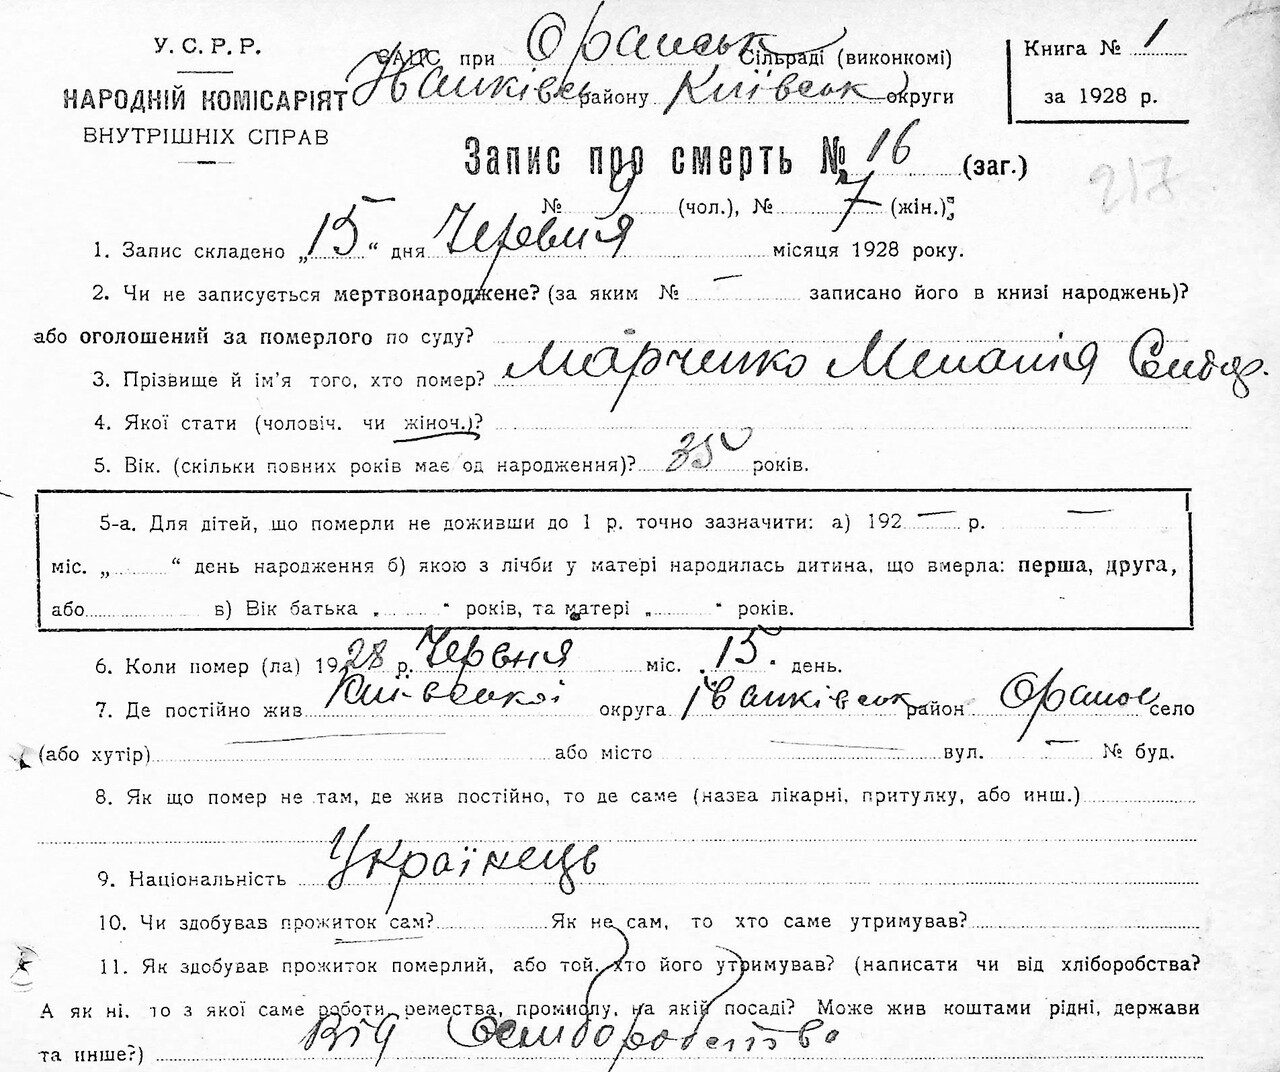 У. С. Р. Р.
НАРОДНІЙ КОМІСАРІЯТ
ВНУТРІШНІХ СПРАВ
ЗАЦС при Оранськ Сільраді (виконкомі)
Іванківськ району Київськ округи
Книга № 1
за 1928 р.
Запис про смерть № 16 (заг.)
№ 9 (чол.), № 7 (жін.);
217
1. Запис складено „15“ дня Червня місяця 1928 року.
2. Чи не записується мертвонароджене? (за яким № — записано його в книзі народжень)?
або оголошений за померлого по суду?
3. Прізвище й ім'я того, хто помер? Марченко Меланія
4. Якої стати (чоловіч. чи жіноч.)?
5. Вік. (скільки повних років має од народження)? 35 років.
5-а. Для дітей, що померли не доживши до 1 р. точно зазначити: а) 192 — р. —
міс. „ “ день народження б) якою з лічби у матері народилась дитина, що вмерла: перша, друга,
або в) Вік батька „ “ років, та матері „ “ років.
6. Коли помер (ла) 1928 р. Червня міс. 15 день.
7. Де постійно жив Київської округа Іванківськ район Оране село
(або хутір) — або місто — вул. — № буд.
8. Як що помер не там, де жив постійно, то де саме (назва лікарні, притулку, або инш.)
9. Національність Українець
10. Чи здобував прожиток сам? Як не сам, то хто саме утримував?
11. Як здобував прожиток померлий, або той, хто його утримував? (написати чи від хліборобства?
А як ні, то з якої саме роботи, ремества, промислу, на якій посаді? Може жив коштами рідні, держави
та инше?) Від